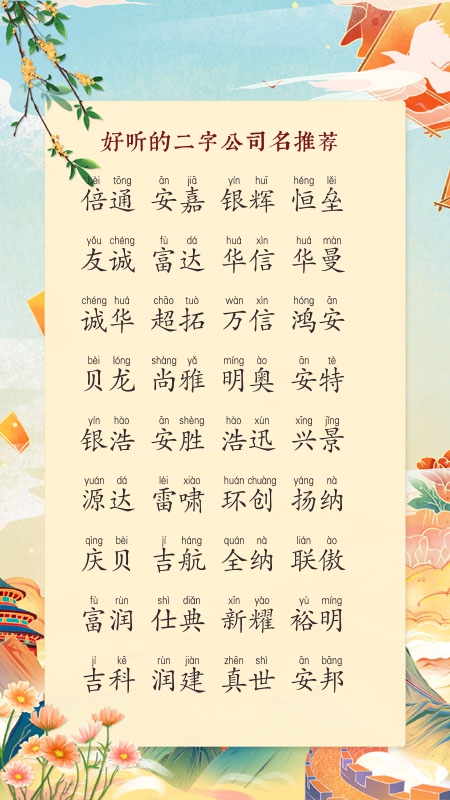 好听的二字公司名推荐
bèi tōng ān jiā yín huī héng lěi
倍通 安嘉 银辉 恒垒
yǒu chéng fù dá huá xìn huá màn
友诚 富达 华信 华曼
chéng huá chāo tuò wàn xìn hóng ān
诚华 超拓 万信 鸿安
bèi lóng shàng yǎ míng ào ān tè
贝龙 尚雅 明奥 安特
yín hào ān shèng hào xùn xīng jǐng
银浩 安胜 浩迅 兴景
yuán dá léi xiào huán chuàng yáng nà
源达 雷啸 环创 扬纳
qìng bèi jí háng quán nà lián ào
庆贝 吉航 全纳 联傲
fù rùn shì diǎn xīn yào yù míng
富润 仕典 新耀 裕明
jí kē rùn jiàn zhēn shì ān bāng
吉科 润建 真世 安邦